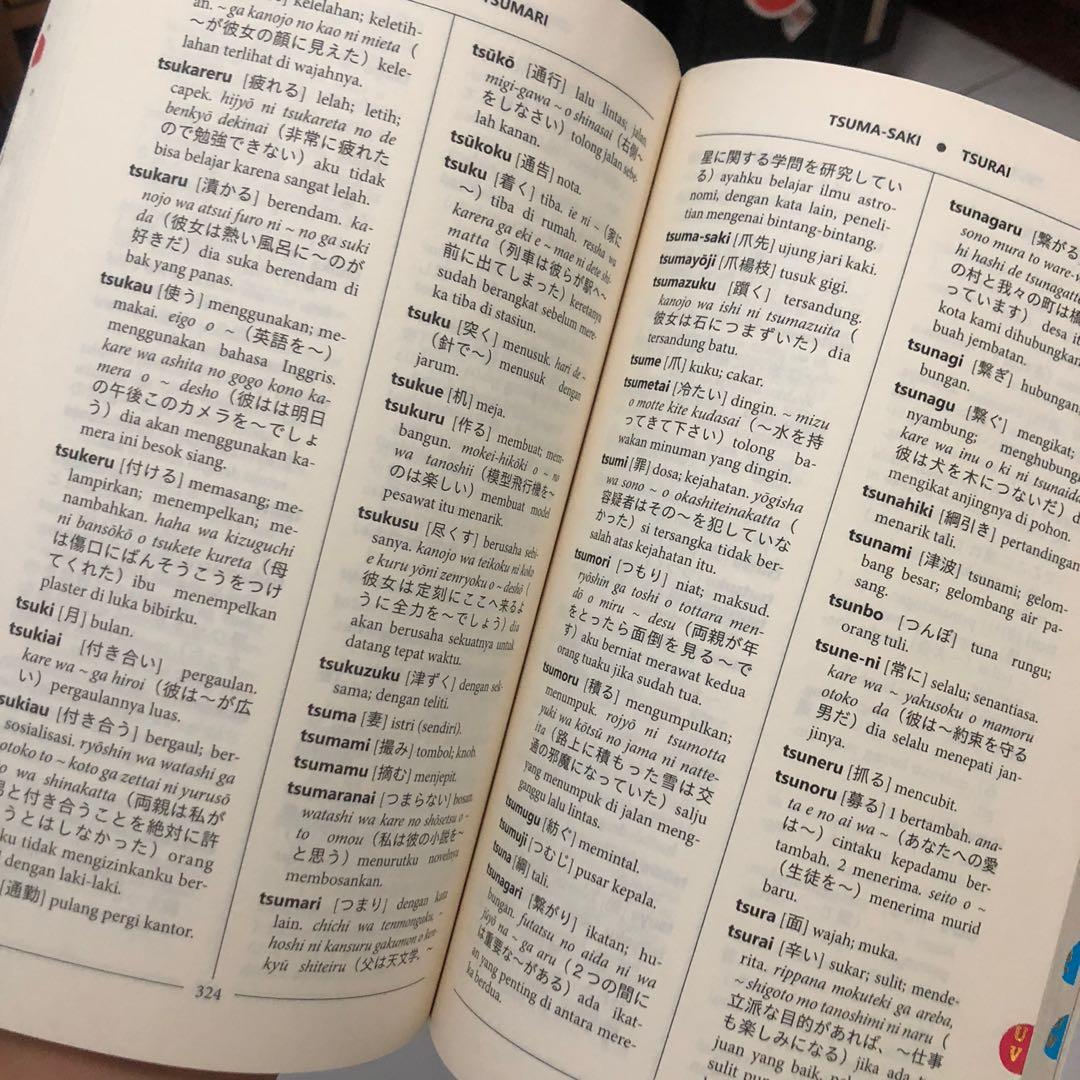 TSUMARI
an. ~ ga kanojo no kao ni mieta (
～が彼女の顔に見えた) kele-
lahan terlihat di wajahnya.
tsukareru [疲れる] lelah; letih;
capek. hijyō ni tsukareta no de
benkyō dekinai (非常に疲れた
ので勉強できない) aku tidak
bisa belajar karena sangat lelah.
tsukaru [漬かる] berendam. ka-
nojo wa atsui furo ni ~ no ga suki
da (彼女は熱い風呂に～のが
好きだ) dia suka berendam di
bak yang panas.
tsukau [使う] menggunakan; me-
makai. eigo o ~ (英語を～)
menggunakan bahasa Inggris.
kare wa ashita no gogo kono ka-
mera o ~ desho (彼はは明日
の午後このカメラを～でしょ
う) dia akan menggunakan ka-
mera ini besok siang.
tsukeru [付ける] memasang; me-
lampirkan; menempelkan; me-
nambahkan. haha wa kizuguchi
ni bansōkō o tsukete kureta (母
は傷口にばんそうこうをつけ
てくれた) ibu menempelkan
plaster di luka bibirku.
tsuki [月] bulan.
tsukiai [付き合い] pergaulan.
kare wa ~ ga hiroi (彼は～が広
い) pergaulannya luas.
sukiau [付き合う] bergaul; ber-
sosialisasi. ryōshin wa watashi ga
otoko to ~ koto ga zettai ni yurusō
o wa shinakatta (両親は私が
男と付き合うことを絶対に許
うとはしなかった) orang
ku tidak mengizinkanku ber-
l dengan laki-laki.
[通勤] pulang pergi kantor.
324
tsūkō [通行] lalu lintas; jalan.
migi-gawa ~ o shinasai (右側～
をしなさい) tolong jalan sebe-
lah kanan.
tsūkoku [通告] nota.
tsuku [着く] tiba. ie ni ~ (家に
～) tiba di rumah. ressha wa
karera ga eki e ~ mae ni dete shi-
matta (列車は彼らが駅へ～
前に出てしまった) keretanya
sudah berangkat sebelum mere-
ka tiba di stasiun.
tsuku [突く] menusuk. hari de ~
(針で～) menusuk dengan
jarum.
tsukue [机] meja.
tsukuru [作る] membuat; mem-
bangun. mokei-hikōki o ~ no
wa tanoshii (模型飛行機を～
のは楽しい) membuat model
pesawat itu menarik.
tsukusu [尽くす] berusaha sebi-
sanya. kanojo wa teikoku ni koko
e kuru yōni zenryoku o ~ deshō (
彼女は定刻にここへ来るよ
うに全力を～でしょう) dia
akan berusaha sekuatnya untuk
datang tepat waktu.
tsukuzuku [津ずく] dengan sek-
sama; dengan teliti.
tsuma [妻] istri (sendiri).
tsumami [撮み] tombol; knob.
tsumamu [摘む] menjepit.
tsumaranai [つまらない] bosan.
watashi wa kare no shōsetsu o ~
to omou (私は彼の小説を～
と思う) menurutku novelnya
membosankan.
tsumari [つまり] dengan kata
lain. chichi wa tenmongaku, ~
hoshi ni kansuru gakumon o ken-
kyū shiteiru (父は天文学、～
TSUMA-SAKI ● TSURAI
星に関する学問を研究してい
る) ayahku belajar ilmu astro-
nomi, dengan kata lain, peneli-
tian mengenai bintang-bintang.
tsuma-saki [爪先] ujung jari kaki.
tsumayōji [爪楊枝] tusuk gigi.
tsumazuku [躓く] tersandung.
kanojo wa ishi ni tsumazuita (
彼女は石につまずいた) dia
tersandung batu.
tsume [爪] kuku; cakar.
tsumetai [冷たい] dingin. ~ mizu
o motte kite kudasai (～水を持
ってきて下さい) tolong ba-
wakan minuman yang dingin.
tsumi [罪] dosa; kejahatan. yōgisha
wa sono ~ o okashiteinakatta (
容疑者はその～を犯していな
かった) si tersangka tidak ber-
salah atas kejahatan itu.
tsumori [つもり] niat; maksud.
ryōshin ga toshi o tottara men-
dō o miru ~ desu (両親が年
をとったら面倒を見る～で
す) aku berniat merawat kedua
orang tuaku jika sudah tua.
tsumoru [積る] mengumpulkan;
menumpuk. rojyō ni tsumotta
yuki wa kōtsū no jama ni natte-
ita (路上に積もった雪は交
通の邪魔になっていた) salju
yang menumpuk di jalan meng-
ganggu lalu lintas.
tsumugu [紡ぐ] memintal.
tsumuji [つむじ] pusar kepala.
tsuna [綱] tali.
tsunagari [繋がり] ikatan; hu-
bungan. futatsu no aida ni wa
jūyō na ~ ga aru (２つの間に
は重要な～がある) ada ikat-
an yang penting di antara mere-
ka berdua.
tsunagaru [繋がる
sono mura to ware-w
hi hashi de tsunagatt
の村と我々の町は橋
っています) desa it
kota kami dihubungkan
buah jembatan.
tsunagi [繋ぎ] hubungan
bungan.
tsunagu [繋ぐ] mengikat;
nyambung; menghubung
kare wa inu o ki ni tsunaida
彼は犬を木につないだ) d
mengikat anjingnya di pohon.
tsunahiki [綱引き] pertandingan
menarik tali.
tsunami [津波] tsunami; gelom-
bang besar; gelombang air pa-
sang.
tsunbo [つんぼ] tuna rungu;
orang tuli.
tsune-ni [常に] selalu; senantiasa.
kare wa ~ yakusoku o mamoru
otoko da (彼は～約束を守る
男だ) dia selalu menepati jan-
jinya.
tsuneru [抓る] mencubit.
tsunoru [募る] 1 bertambah. ana-
ta e no ai wa ~ (あなたへの愛
は～) cintaku kepadamu ber-
tambah. 2 menerima. seito o ~
(生徒を～) menerima murid
baru.
tsura [面] wajah; muka.
tsurai [辛い] sukar; sulit; mende-
rita. rippana mokuteki ga areba,
~ shigoto mo tanoshimi ni naru (
立派な目的があれば、～仕事
も楽しみになる) jika ada t
juan yang baik, pek
sulit pu
U
V